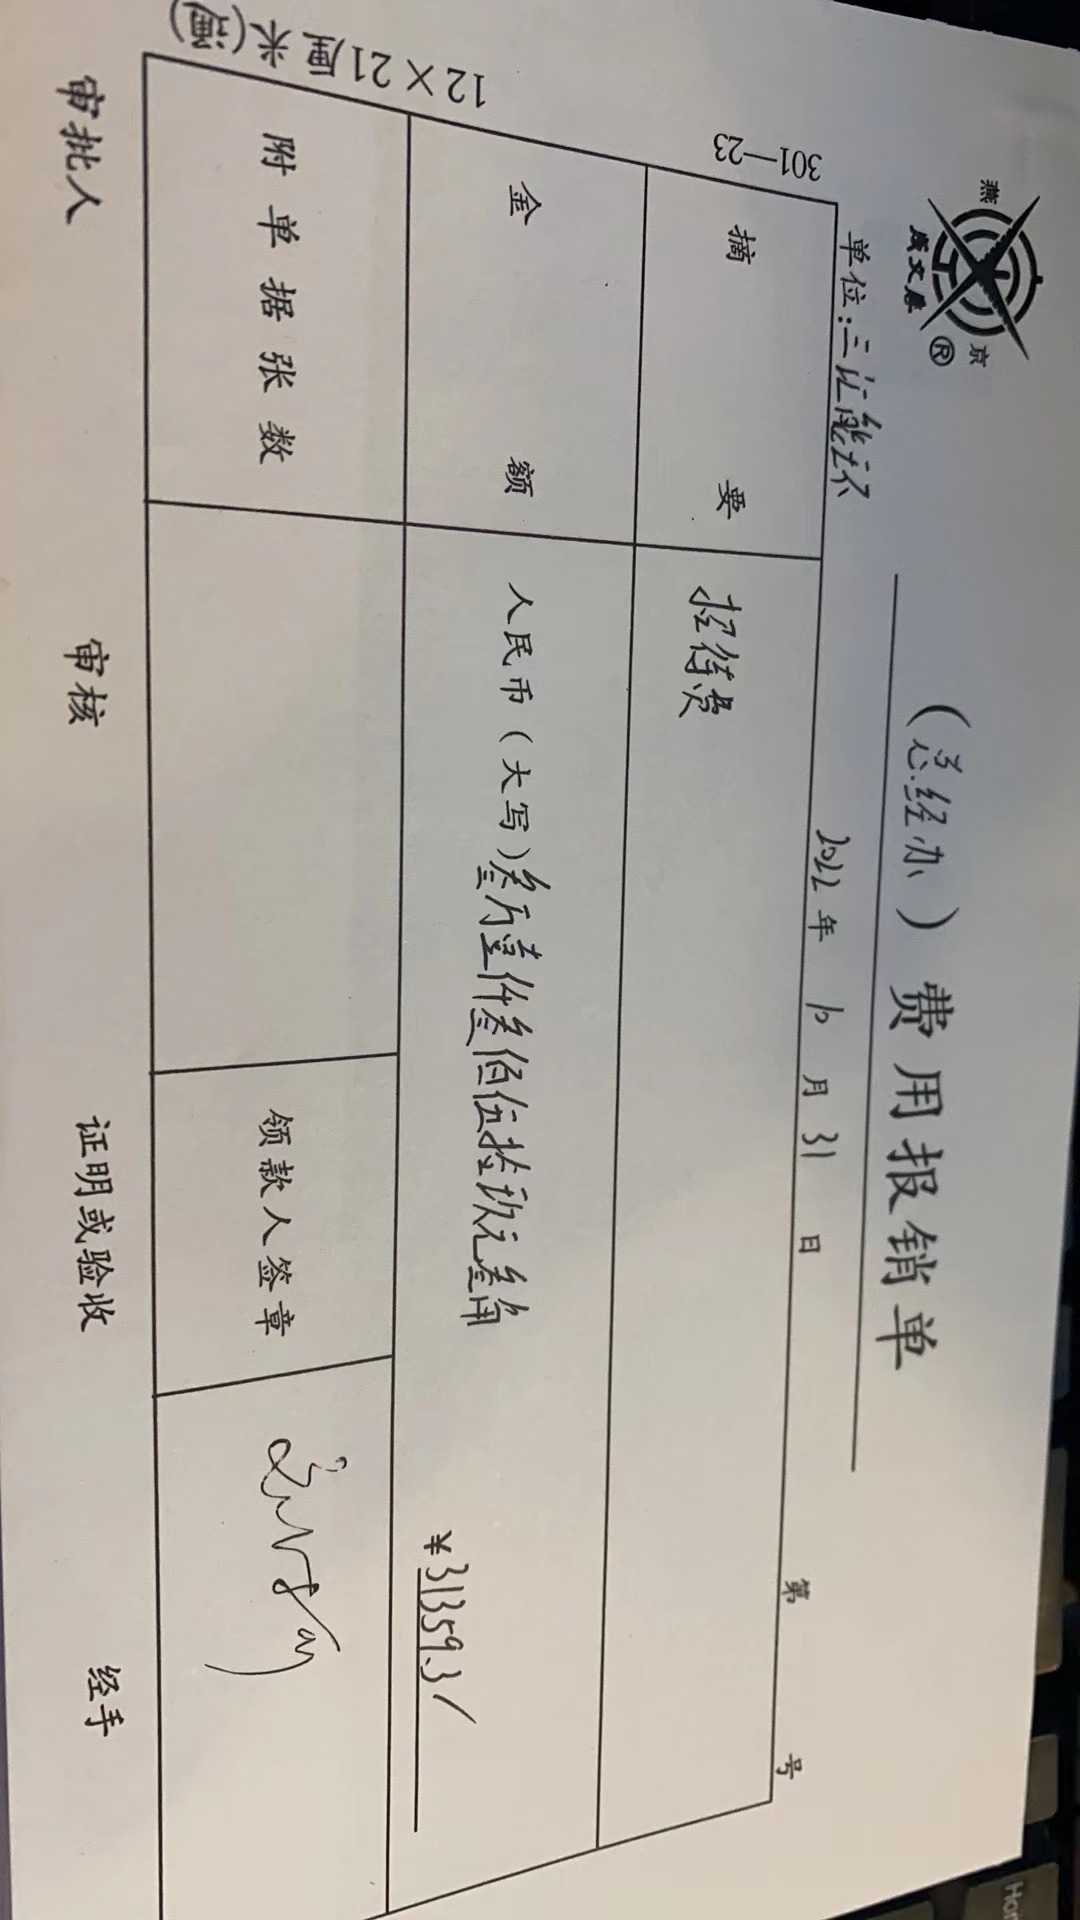 燕 京
成文厚 ®
（总经办）费用报销单
单位：三让能环 2022年 10月 31日 第 号
301—23
摘要 招待费
12×21厘米(通)
金额 人民币（大写）叁万壹仟叁佰伍拾玖元叁角 ¥31359.3
附单据张数 领款人签章
审批人 审核 证明或验收 经手
Ho